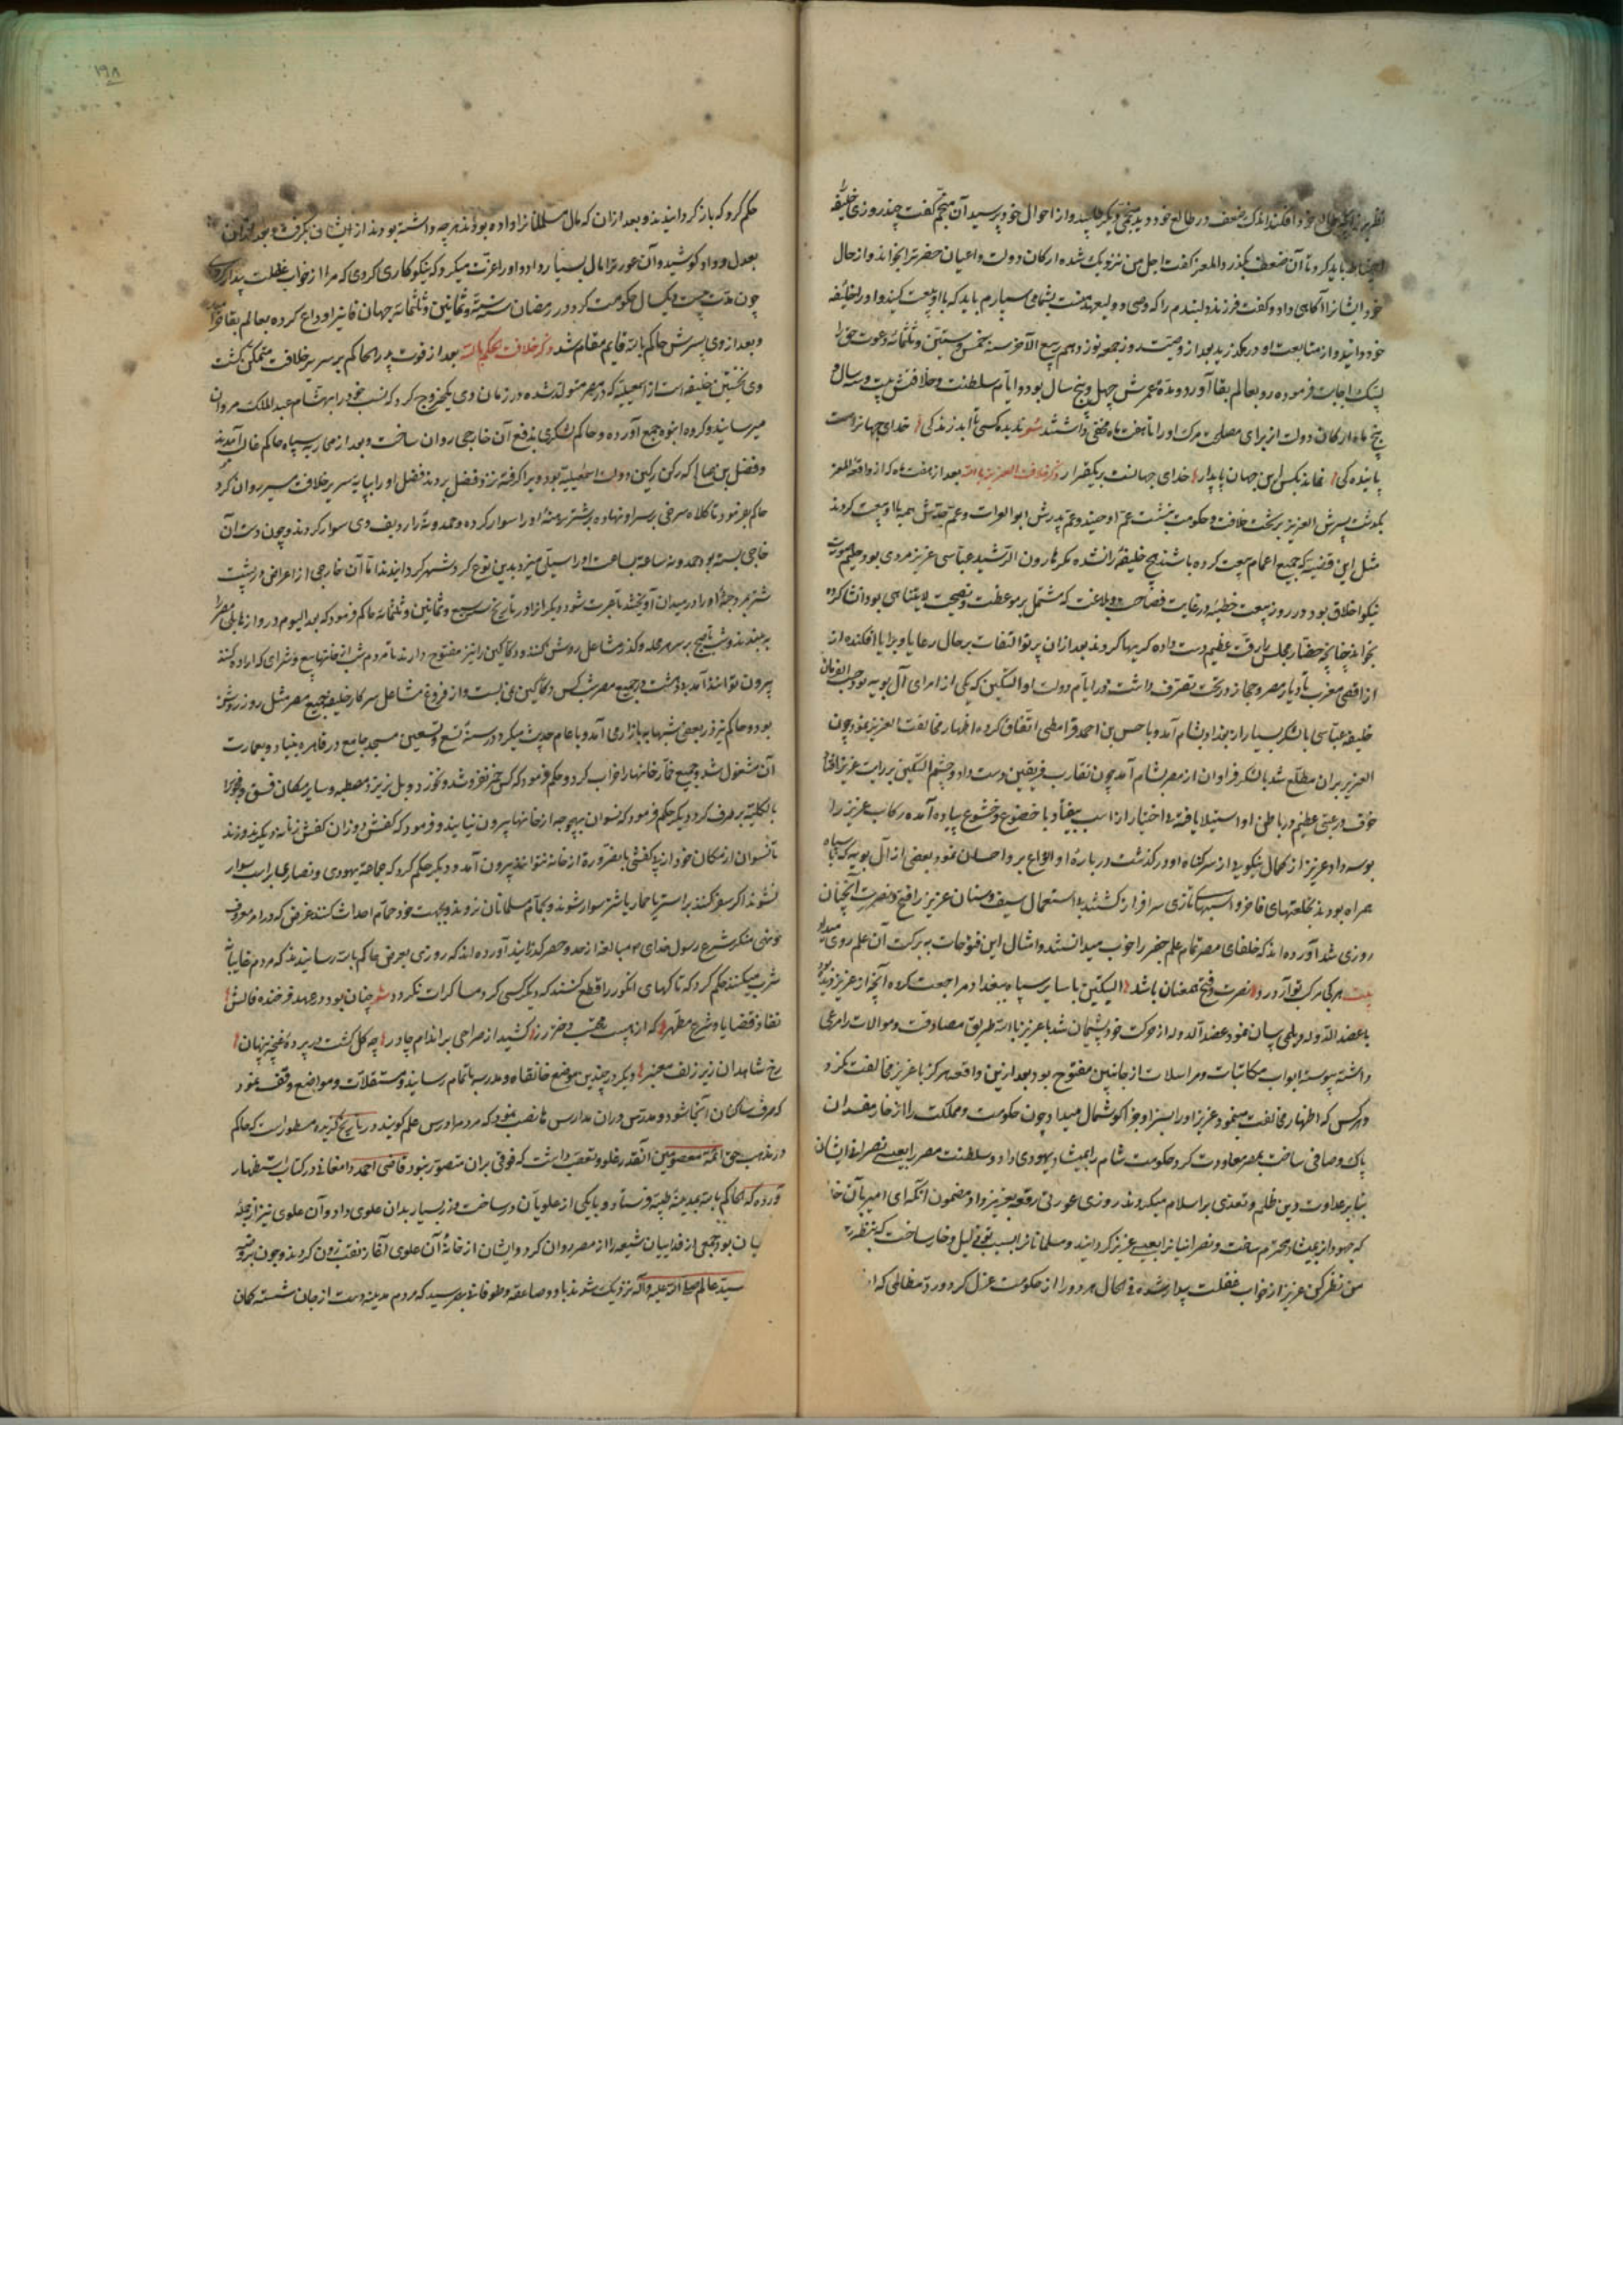 نظر بر زایچه طالع خود افکند اندک ضعف در طالع خود دید منجمی دیگر طلبید و از احوال خود پرسید آن منجم گفت چند روزی خلیفه را
احتیاط باید کرد تا آن ضعف بگذرد المعز گفت اجل من نزدیک شده ارکان دولت و اعیان حضرت را بخواند و از حال
خود ایشانرا آگاهی داد و گفت فرزند دلبندم را که وصی و ولیعهد منست بشما می سپارم باید که با او بیعت کنید و او را خلیفه
خود دانید و از متابعت او در مگذرید بعد از وصیت روز جمعه نوزدهم ربیع الآخر سنه خمس و ستین و ثلثمائه دعوت حق را
لبیک اجابت فرموده رو بعالم بقا آورد و مدة عمرش چهل و پنج سال بود و ایام سلطنت و خلافتش بیست و سه سال و
پنج ماه ارکان دولت از برای مصلحت مرک او را تا هفت ماه مخفی داشتند شعر ندیده کسی تا ابد زندکی خدای جهانراست
پاینده کی نماند بکس این جهان پایدار خدای جهانست بریکقرار ذکر خلافت العزیز بالله بعد از هفت ماه که از واقعه المعز
بگذشت پسرش العزیز بر تخت خلافت و حکومت بنشست عم او حیدر و عم پدرش ابو الفرات و عم جدش همه با او بیعت کردند
مثل این قضیه که جمیع اعمام بیعت کرده باشند هیچ خلیفه را نشده مکر هارون الرشید عباسی عزیز مردی بود حلیم صورت
نیکو اخلاق بود و در روز بیعت خطبه در غایت فصاحت و بلاغت که مشتمل بر موعظت و نصیحت لایتناهی بود انشا کرده
بخواند چنانچه حضار مجلس را رقت عظیم دست داده کریها کردند بعد از ان پرتو التفات بر حال رعایا و برایا افکنده از
از اقصی مغرب تا دیار مصر و حجاز در تحت تصرف داشت در ایام دولت او التکین که یکی از امرای آل بویه بود حسب الفرمان
خلیفه عباسی با لشکر بسیار از بغداد بشام آمد و با حسن بن احمد قرامطی اتفاق کرده اظهار مخالفت العزیز نمود چون
العزیز بران مطلع شد با لشکر فراوان از مصر بشام آمد چون تقارب فریقین دست داد و چشم التکین بر رایت عزیز افتاد
خوف و رعبی عظیم در باطن او استیلا یافته بی اختیار از اسب بیفتاد با خضوع و خشوع پیاده آمده رکاب عزیز را
بوسه داد عزیز از کمال نیکویی از سر گناه او در گذشت و در بارهٔ او انواع بر و احسان نمود و بعضی از آل بویه که با سپاه
همراه بودند بخلعتهای فاخر و اسبهای تازی سرافراز گشتند بی استعمال سیف و سنان عزیز را فتح و نصرت آنچنان
روزی شد آورده اند که خلفای مصر تمام علم جفر را خوب میدانستند و امثال این فتوحات به برکت آن علم روی میداد
بیت هر کی مرک تو آرد رو نصرت و فتح همعنان باشد التکین با سایر سپاه ببغداد مراجعت کرده آنچه از عزیز دیده بود
با عضد الدوله دیلمی بیان نمود عضد الدوله از حرکت خود پشیمان شد با عزیز بالله طریق مصادقت و موالات را مرعی
داشته پیوسته ابواب مکاتبات و مراسلات از جانبین مفتوح بود بعد ازین واقعه هرکز با عزیز مخالفت نکرد و
هرکس که اظهار مخالفت مینمود عزیز او را بسزا و جزا کوشمال میداد چون حکومت و مملکت را از خار مفسدان
پاک و صافی ساخت بمصر معاودت کرد حکومت شام را بمیشا یهودی داد و سلطنت مصر را بعیسی نصرانی ایشان
بنابر عداوت دین ظلم و تعدی بر اسلام میکردند روزی عورتی رقعه بعزیز داد مضمون آنکه ای امیر بآن خدا
که جهود از میشا محترم ساخت و نصرانیانرا بعیسی عزیز کردانید و مسلمانانرا بسبب تو ذلیل و خار ساخت که بنظر
من نظر کن عزیز از خواب غفلت بیدار شده فی الحال هر دو را از حکومت عزل کرد و رد مظالمی که از
حکم کرد که باز کردانیدند و بعد از ان که مال مسلمانانرا داده بودند هر چه داشته بودند از ایشان بکرفت و بعد از ان
بعدل و داد کوشید و آن عورترا مال بسیار داد و او را عزت میکرد که نیکو کاری کردی که مرا از خواب غفلت بیدار کردی
چون مدت بیست و یکسال حکومت کرد در رمضان سنه ستة و ثمانین و ثلثمائه جهان فانیرا وداع کرده بعالم بقا خرامید
و بعد از وی پسرش حاکم بالله قایم مقام شد ذکر خلافت الحاکم بالله بعد از فوت پدر الحاکم بر سریر خلافت متمکن گشت
وی نخستین خلیفه است از اسمعیلیه که در مصر متولد شده در زمان وی یکی خروج کرد که نسب خود را بهشام عبد الملک مروان
میرسانید و کروه انبوه جمع آورده و حاکم لشکری بدفع آن خارجی روان ساخت و بعد از محاربه سپاه حاکم غالب آمدند
و فضل بن صالح که رکن رکین دولت اسمعیلیه بود ویرا کرفته نزد فضل بردند فضل او را بپایه سریر خلافت مصیر روان کرد
حاکم بفرمود تا کلاه سرخی بر سر او نهاده بر شتر برهنه او را سوار کرده و حمدونه را ردیف وی سوار کردند و چون دست آن
خارجی بسته بود حمدونه ساعت بساعت او را سیلی میزد بدین نوع کرد شهر کردانیدند تا آن خارجی از اعراض در پشت
شتر بمرد جثهٔ او را در میدان آویختند تا عبرت شود دیکر از او در تاریخ سبع و ثمانین و ثلثمائه حاکم فرمود که بعد الیوم دروازهای مصر را
نه بندند و شب تا صبح بر سر هر محله و کذر و مشاعل روشن کنند و دکاکین را نیز مفتوح دارند تا مردم شب از خانها بیع و شرای که اراده کنند
بیرون توانند آمد در جمیع مصر شب کس دکاکین نمی بست و از فروغ مشاعل سرکار خلیفه جمیع مصر مثل روز روشن
بود و حاکم نیز در بعضی شبها ببازار می آمد و با عام حدیث میکرد در سنه تسع و تسعین مسجد جامع در قاهره بنیاد و بعمارت
آن مشغول شد و جمیع خمار خانها را خراب کرد و حکم فرمود که کس خمر نفروشد و نخورد و بل نریزد مصطبه و سایر مکان فسق و فجور را
بالکلیه برطرف کرد دیکر حکم فرمود که نسوان بهیچوجه از خانها بیرون نیایند و فرمود که کفش دوزان کفش زنانه دیکر ندوزند
تا نسوان از مکان خود از بی کفشی بالضرورة از خانه نتوانند بیرون آمد و دیکر حکم کرد که جماعة یهودی و نصاری بر اسب سوار
نشوند اکر سفر کنند بر استر یا حمار یا شتر سوار شوند و بحمام مسلمانان نروند و بجهت خود حمام احداث کنند غرض که در امر معروف
و نهی منکر شرع رسول خدای مبالغه از حد و حصر گذرانید آورده اند که روزی بعرض حاکم بالله رسانیدند که مردم غایبانه
شرب میکنند حکم کرد که تاکهای انکور را قطع کنند که دیگر کسی کرد مسکرات نکردد شعر چنان بود در عهد فرخنده فالش
نفاذ قضایا و شرع مطهر که از بیم محتسب دختر رز کشید از صراحی بر اندام چادر چه کل کشت در پردهٔ غنچه پنهان
رخ شاهدان زیر زلف معنبر و دیکر در چندین موضع خانقاه و مدرسه باتمام رسانید و مستقلات و مواضع وقف نمود
که صرف ساکنان آنجا شود و مدرس دران مدارس نصب نمود که مردم را درس علم کویند در تاریخ کزیده مسطورست که حاکم
در مذهب حق ائمه معصومین آنقدر غلو و تعصب داشت که فوقی بران متصور نبود قاضی احمد دامغانی در کتاب استظهار
آورده که الحاکم بالله بمدینه طیبه فرستاد و با یکی از علویان در ساخت و زر بسیار بدان علوی داد و آن علوی نیز از جمله
یان بود جمعی از فداییان شیعه را از مصر روان کرد و ایشان از خانهٔ آن علوی آغاز نقب زدن کردند و چون بروضه
سید عالم صلی الله علیه و آله نزدیک شدند باد و صاعقه و طوفانی بهم رسید که مردم مدینه دست از جان شسته کمان
۲۹۸